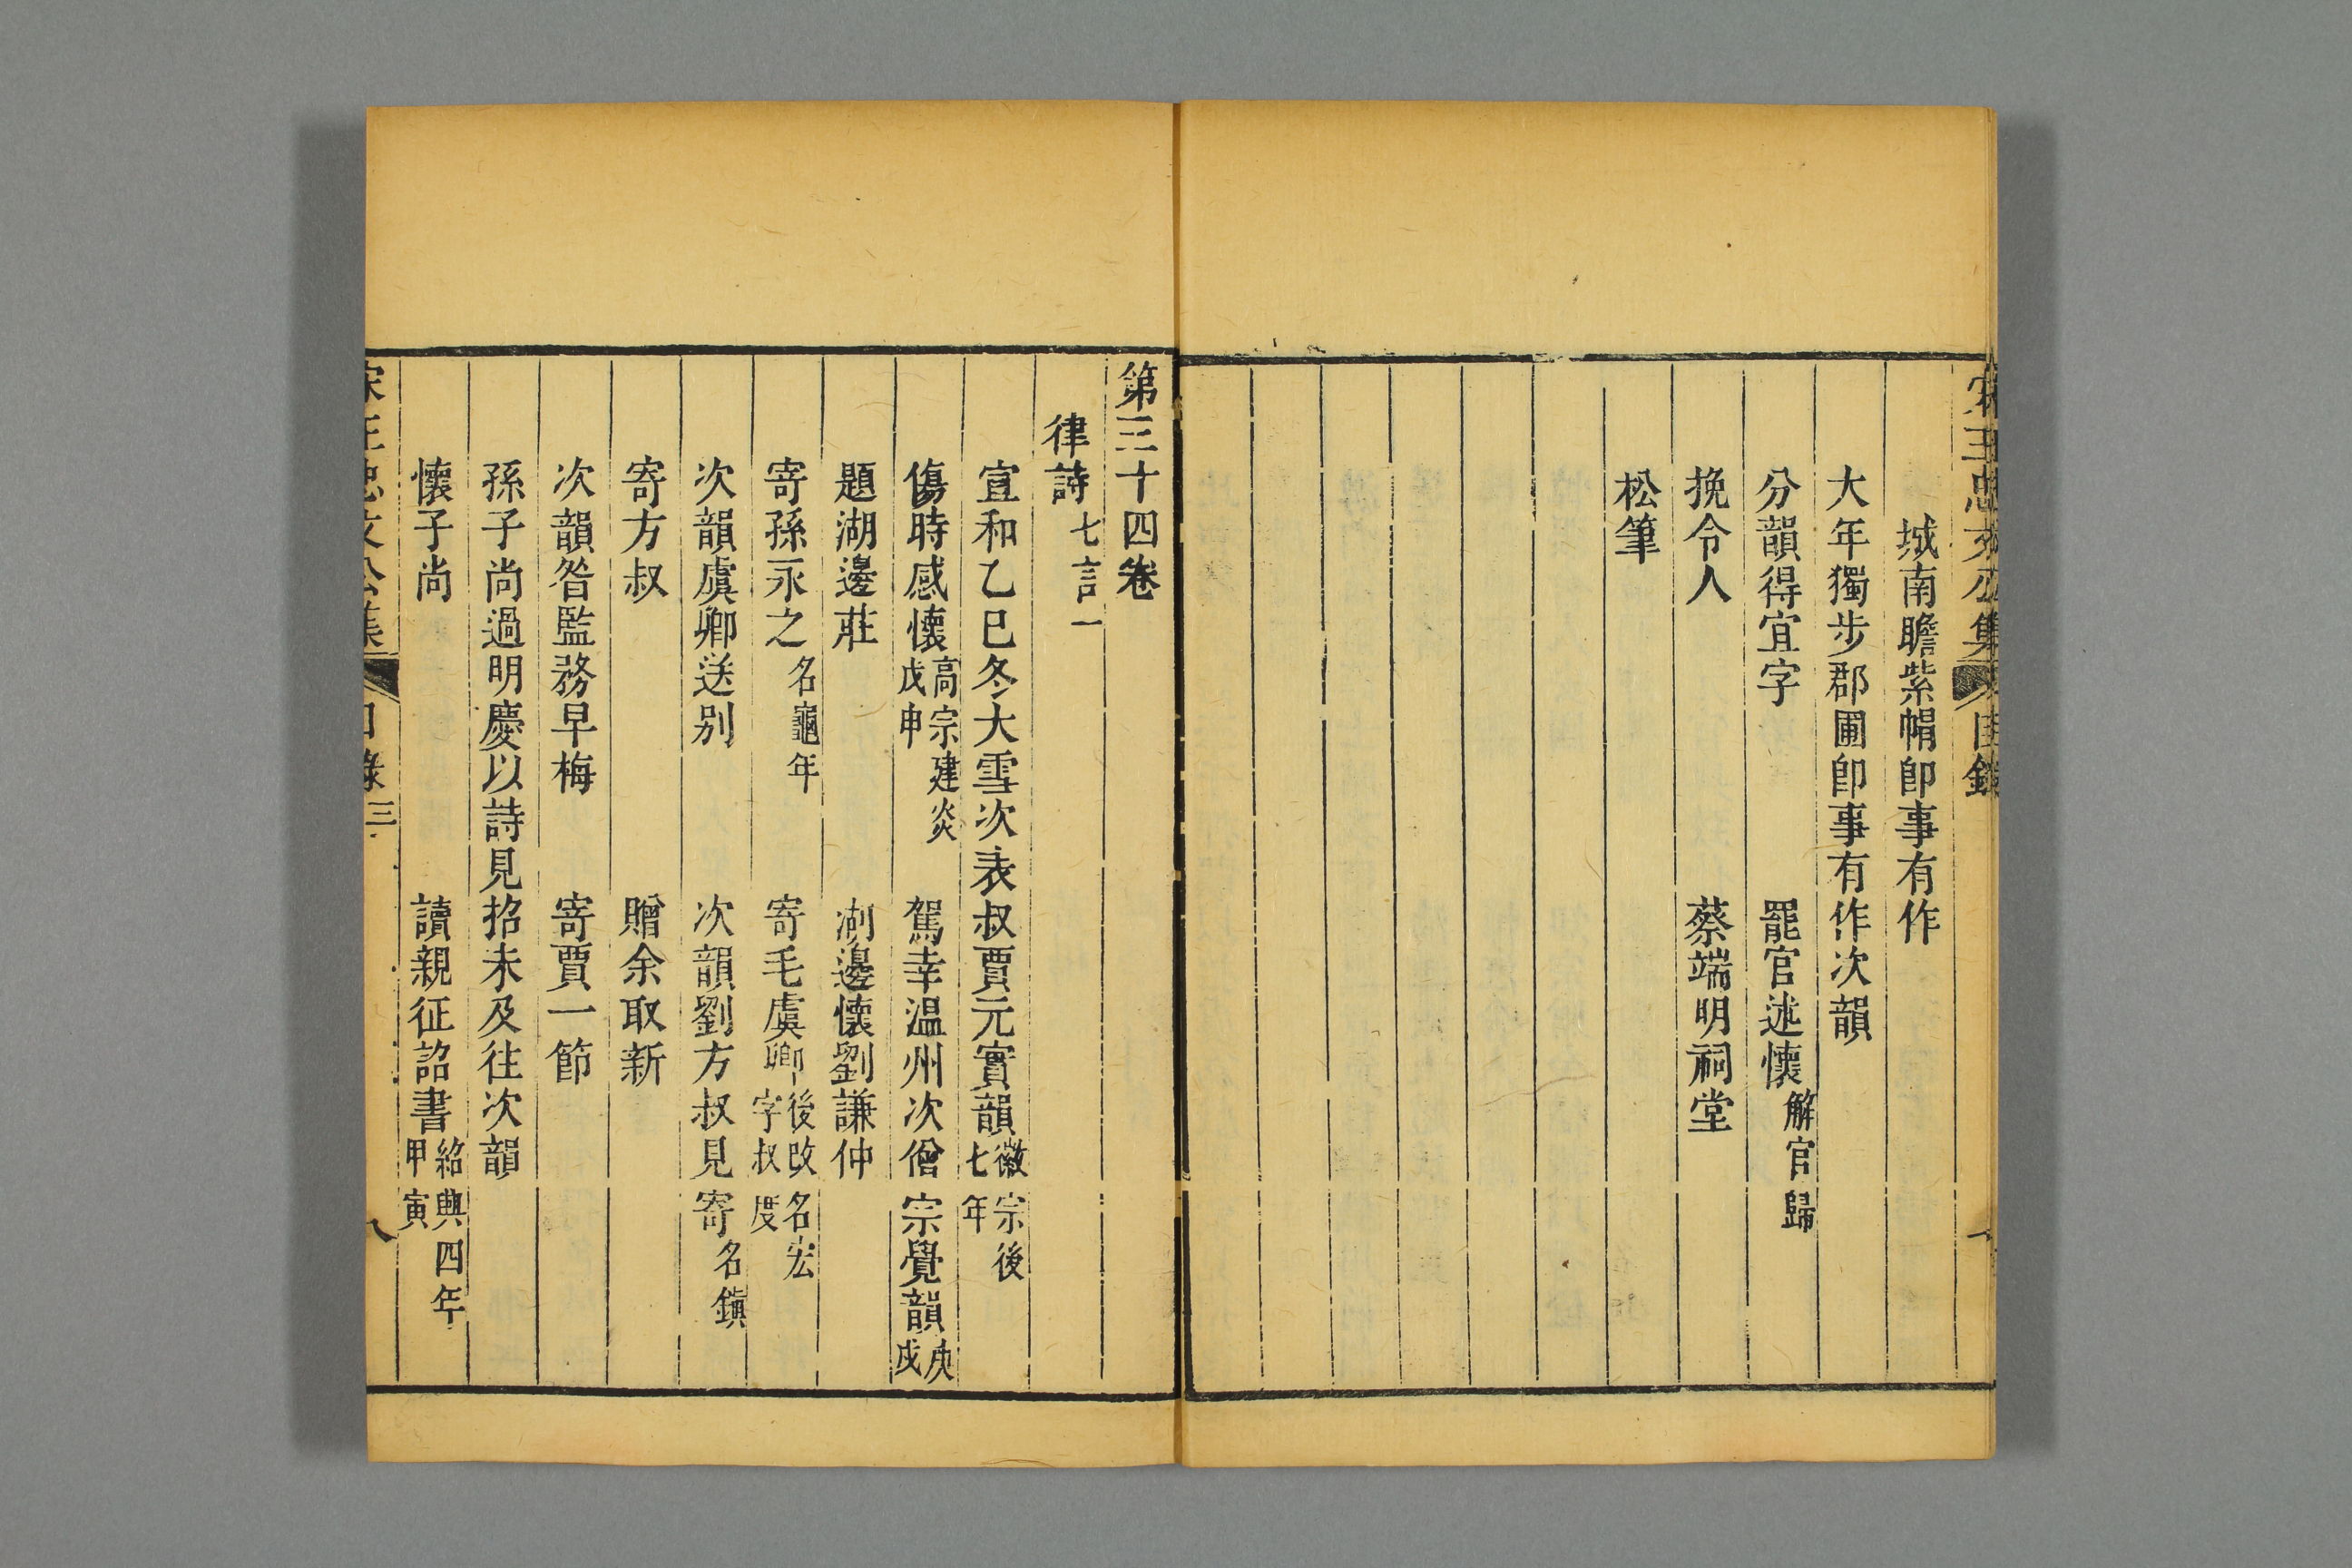 宋王忠文公集 目錄
城南瞻紫幃卽事有作
大年獨步郡圃卽事有作次韻
分韻得宜字 罷官述懷 解官歸
挽令人 蔡端明祠堂
松筆
第三十四卷
律詩 七言一
宣和乙巳冬大雪次表叔賈元實韻 徽宗後七年
傷時感懷 高宗建炎戊申 駕幸温州次僧宗覺韻 庚戌
題湖邊莊 湖邊懷劉謙仲
寄孫永之 名龜年 寄毛虞卿 後改名宏字叔度
次韻虞卿送别 次韻劉方叔見寄 名鎮
寄方叔 贈余取新
次韻昝監務早梅 寄賈一節
孫子尚過明慶以詩見招未及往次韻
懷子尚 讀親征詔書 紹興四年甲寅
宋王忠文公集 目錄三 八